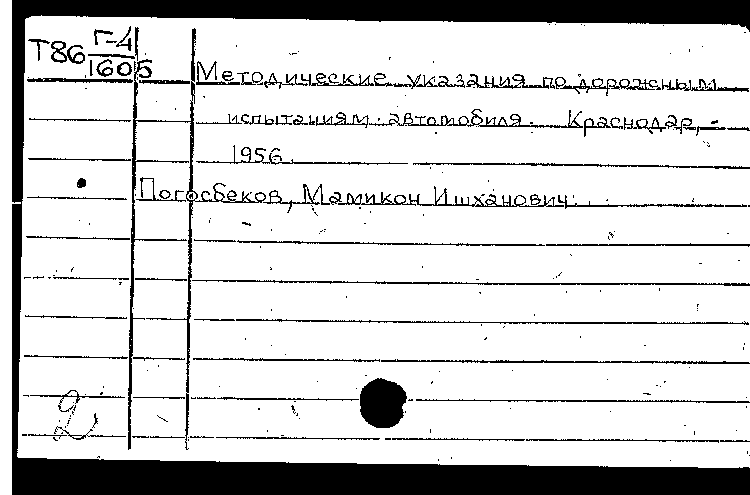 Т86 Г-4
1605
Методические указания по дорожным
испытаниям автомобиля. Краснодар,
1956.
Погосбеков, Мамикон Ишханович.
2